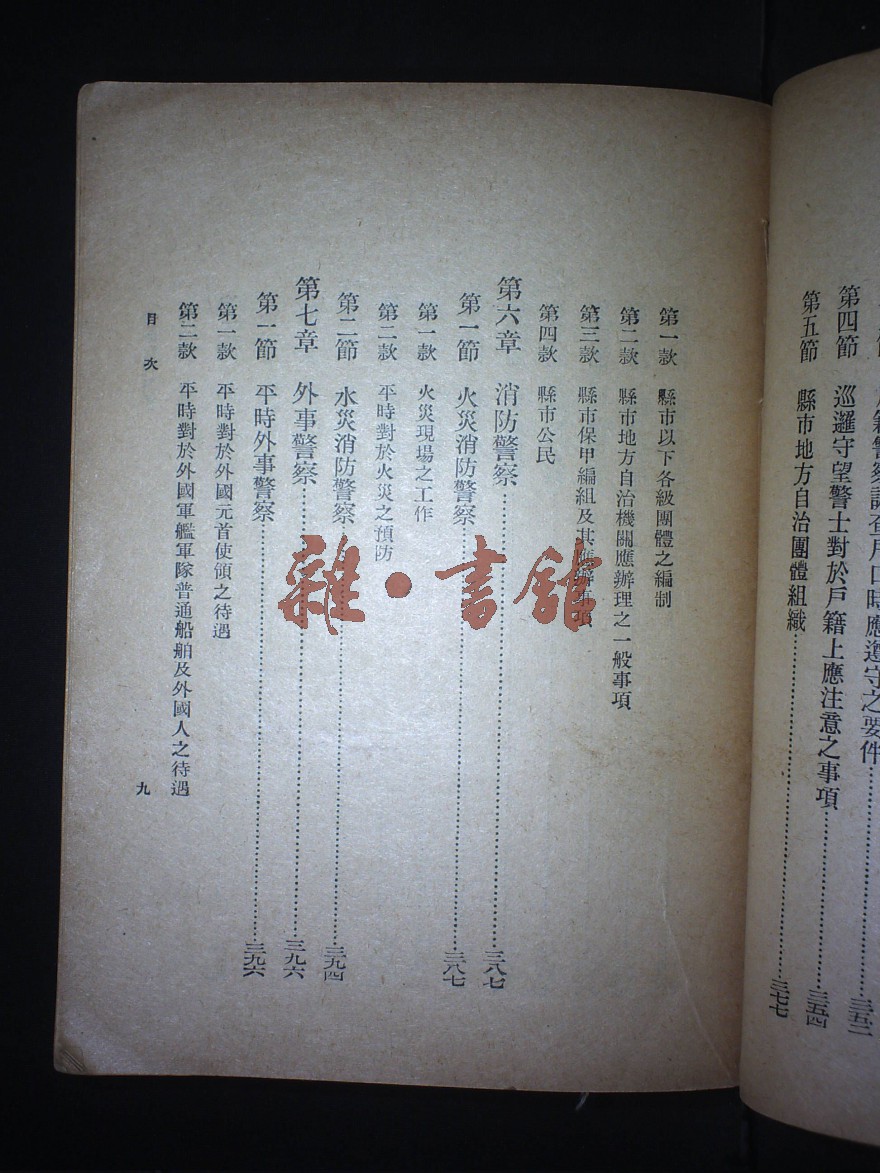 戶籍警察調查戶口時應遵守之要件………三五二
第四節 巡邏守望警士對於戶籍上應注意之事項………三五四
第五節 縣市地方自治團體組織………三七七
第一款 縣市以下各級團體之編制
第二款 縣市地方自治機關應辦理之一般事項
第三款 縣市保甲編組及其應辦事項
第四款 縣市公民
第六章 消防警察………三八七
第一節 火災消防警察………三八七
第一款 火災現場之工作
第二款 平時對於火災之預防
第二節 水災消防警察………三九四
第七章 外事警察………三九六
第一節 平時外事警察………三九六
第一款 平時對於外國元首使領之待遇
第二款 平時對於外國軍艦軍隊普通船舶及外國人之待遇
目次 九
雜·書館